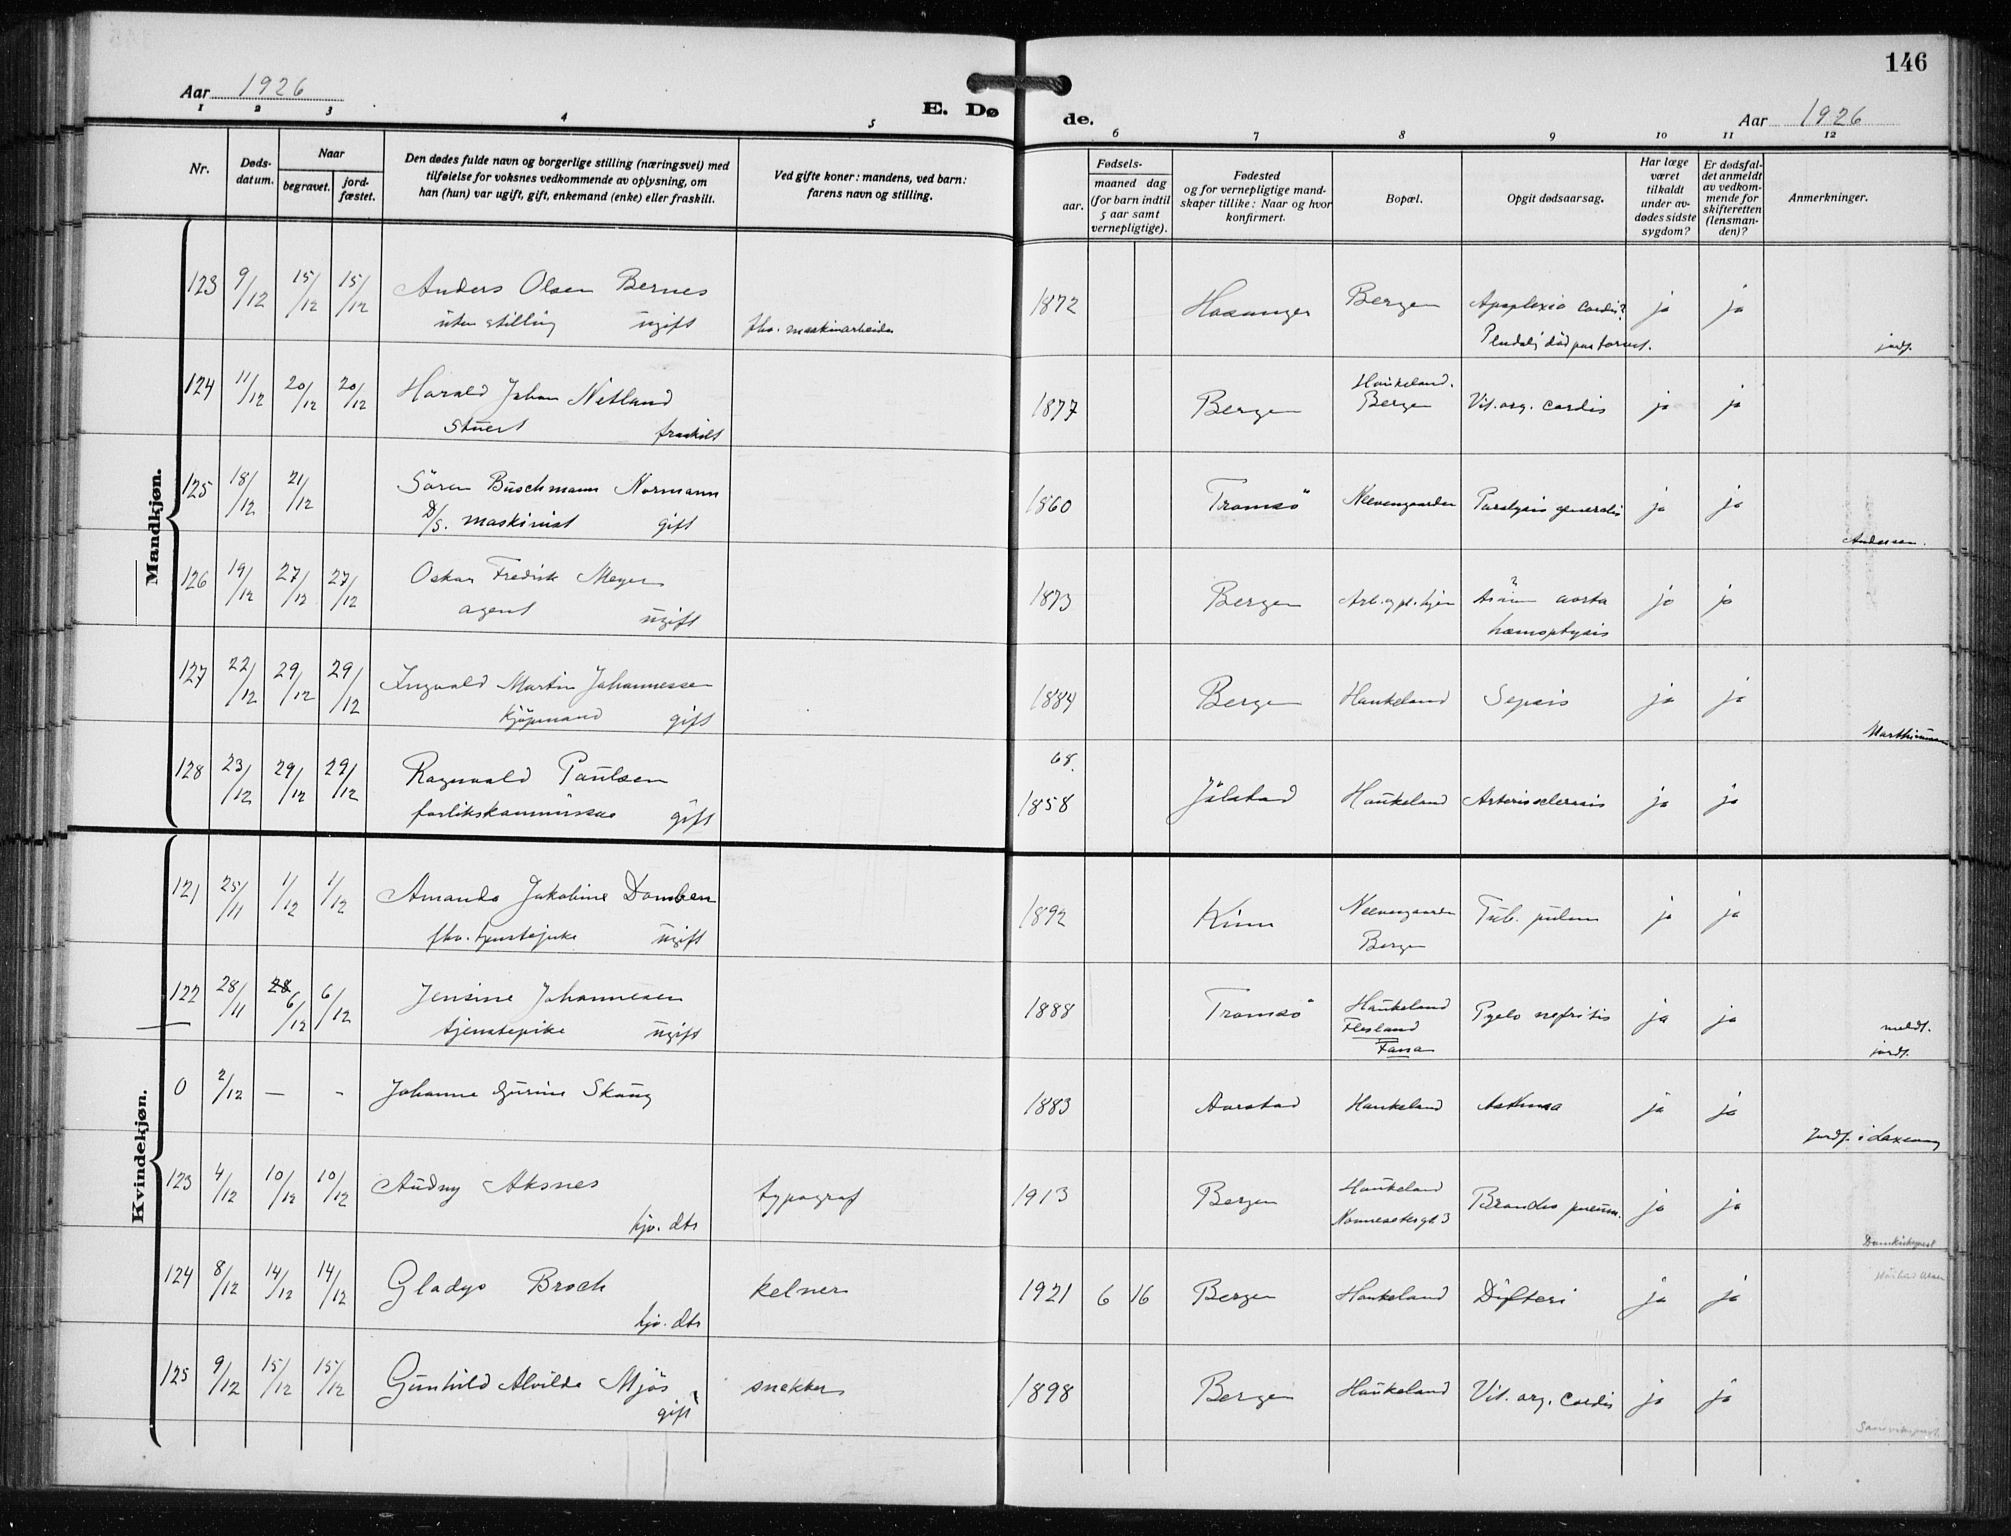 146
Aar 1926
E. Døde.
Aar 1926
1 2 3 4 5 6 7 8 9 10 11 12
Nr.
Døds-datum.
Naar
begravet.
jord-fæstet.
Den dødes fulde navn og borgerlige stilling (næringsvei) med
tilføielse for voksnes vedkommende av oplysning, om
han (hun) var ugift, gift, enkemand (enke) eller fraskilt.
Ved gifte koner: mandens, ved barn:
farens navn og stilling.
Fødsels-
aar.
maaned dag
(for barn indtil
5 aar samt
vernepligtige).
Fødested
og for vernepligtige mand-
skaper tillike: Naar og hvor
konfirmert.
Bopæl.
Opgit dødsaarsag.
Har læge
været
tilkaldt
under av-
dødes sidste
sygdom?
Er dødsfal-
det anmeldt
av vedkom-
mende for
skifteretten
(lensman-
den)?
Anmerkninger.
Mandkjøn.
123 9/12 15/12 15/12 Anders Olsen Bernes 1872 Hosanger Bergen Apoplexia cordis? ja ja
uten stilling ugift fhv. maskinarbeider Pludselig død paa torvet. jordf.
124 11/12 20/12 20/12 Harald Johan Netland 1877 Bergen Haukeland. Bergen Vit. org. cordis ja ja
Stuert fraskilt
125 18/12 21/12 Sören Buschmann Normann 1860 Tromsö Neevengaarden Paralysis generalis ja ja
D/S. maskinist gift Andersen.
126 19/12 27/12 27/12 Oskar Fredrik Meyer 1873 Bergen aorta ja ja
agent ugift hæmoptysis
127 22/12 29/12 29/12 Ingvald Martin Johannessen 1884 Bergen Haukeland Sepsis ja ja
kjöpmand gift
128 23/12 29/12 29/12 Ragnvald Paulsen 68. 1858 Jölstad Haukeland Arteriosclerosis ja ja
forlikskommissær gift
Kvindekjøn.
121 25/11 1/12 1/12 Amanda Jakobine Domben 1892 Kinn Neevengaarden Tub. pulm ja ja
fhv. tjenstepike ugift Bergen
122 28/11 28 6/12 6/12 Jensine Johannesen 1888 Tromsö Haukeland Pyelo nefritis ja ja
tjenstepike ugift Flesland Fana meldt. jordf.
0 2/12 — - Johanne Gurine Skaug 1883 Aarstad Haukeland Asthma ja ja
Jordf. i
123 4/12 10/12 10/12 Audny Aksnes typograf 1913 Bergen Haukeland Nonnesetergt 3 pneum. ja ja
hjv. dtr Domkirkeprest
124 8/12 14/12 14/12 Gladys Broch kelner 1921 6 16 Bergen Haukeland Difteri ja ja
hjv. dtr
125 9/12 15/12 15/12 Gunhild Alvilde Mjös snekker 1898 Bergen Haukeland Vit. org. cordis ja ja
gift Sandviksprest.